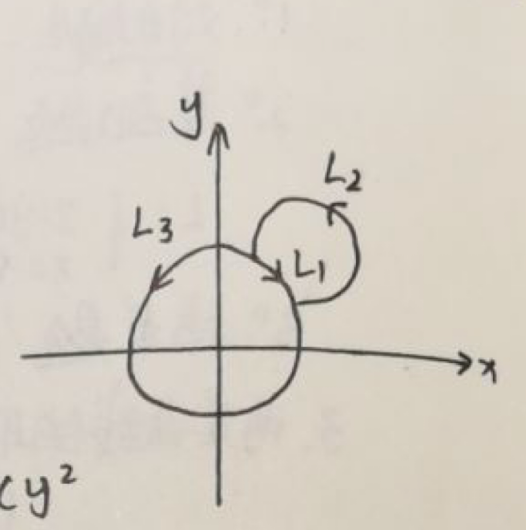 y
L2
L3
L1
x
cy²